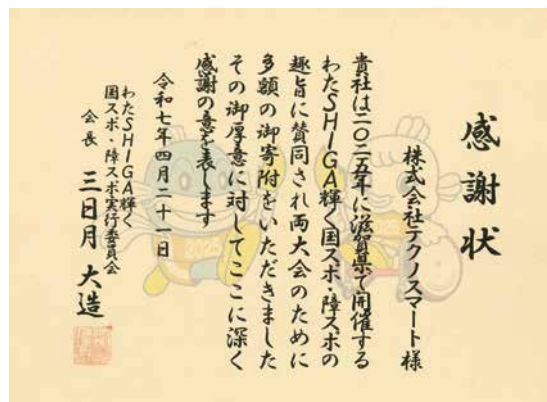 感謝状
株式会社テクノスマート様
貴社は二〇二五年に滋賀県で開催する
わたSHIGA輝く国スポ・障スポの
趣旨に賛同され両大会のために
多額の御寄附をいただきました
その御厚意に対してここに深く
感謝の意を表します
令和七年四月二十一日
わたSHIGA輝く
国スポ・障スポ実行委員会
会長 三日月 大造
2025
2025